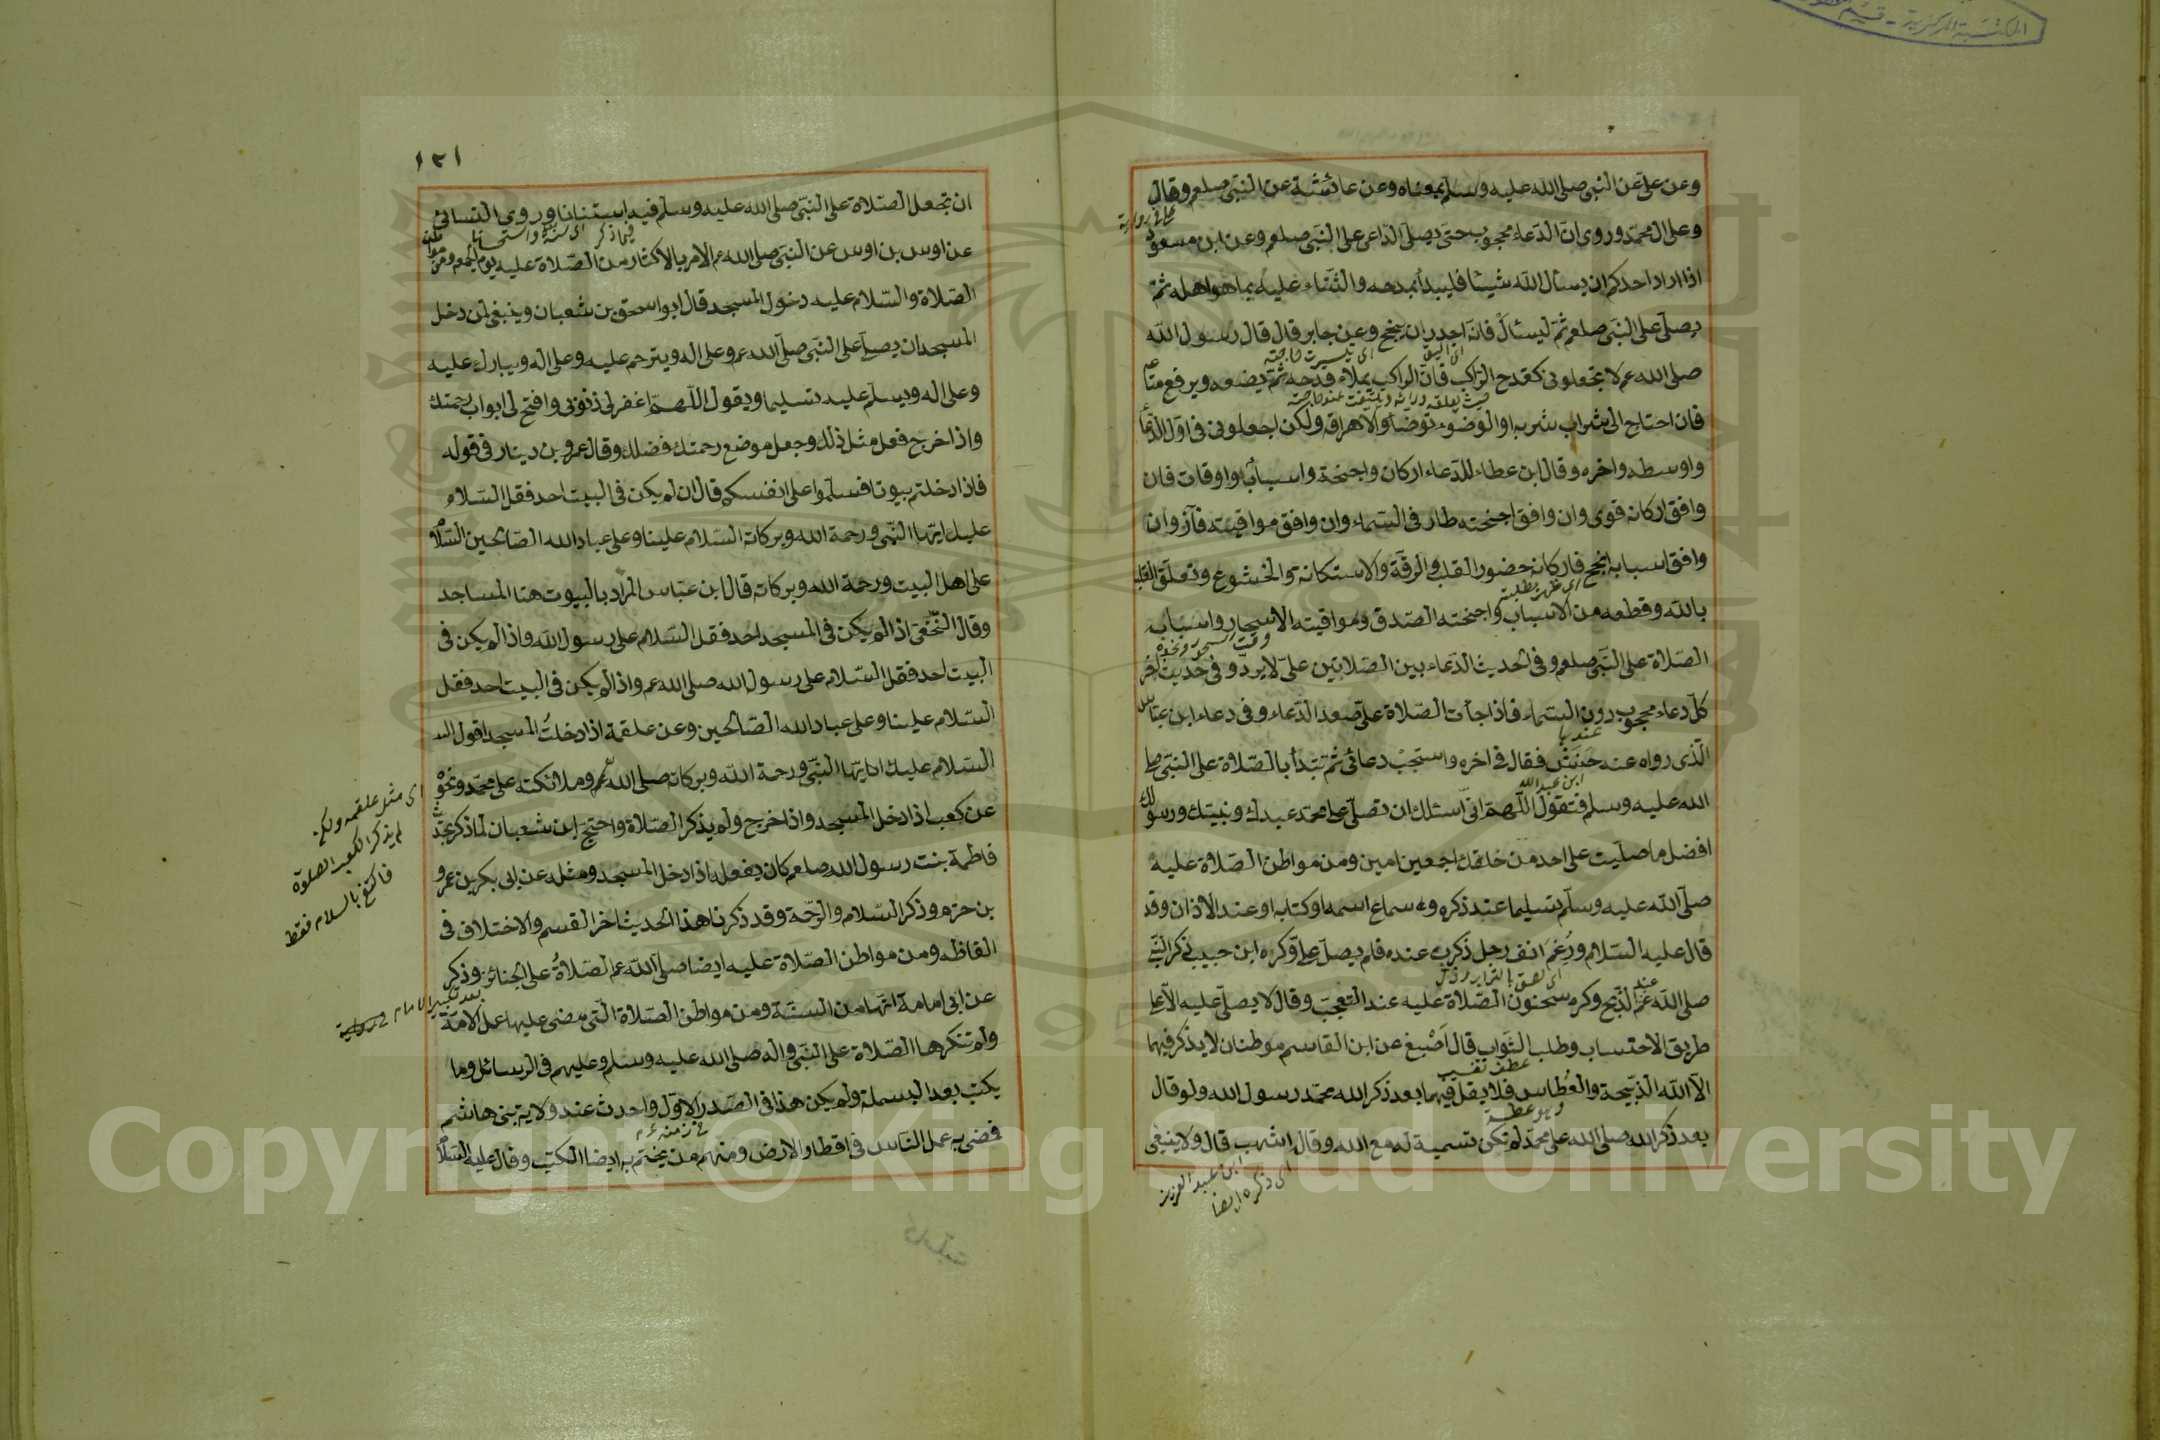 وعن على عن النبى صلى الله عليه وسلم بمعناه وعن عائشة عن النبى صلعم وقال
وعلى ال محمد وروى ان الدعاء محجوب حتى يصلى الداعى على النبى صلعم وعن ابن مسعود
اذا اراد احدكم ان يسأل الله شيئا فليبدأ بمدحه والثناء عليه بما هو اهله ثم
يصلى على النبى صلعم ثم ليسئال فانه اجدر ان ينجح وعن جابر قال قال رسول الله
صلى الله عم لا تجعلونى كقدح الراكب فان الراكب يملاء قدحه ثم يضعه ويرفع متاعه
فان احتاج الى شراب شربه او الوضوء توضأ والا هراقه ولكن اجعلونى فى اول الدعاء
واوسطه واخره وقال ابن عطاء للدعاء اركان واجنحة واسبابا واوقات فان
وافق اركانه قوى وان وافق اجنحته طار فى السماء وان وافق مواقيته فاز وان
وافق اسبابه انجح فاركانه حضور القلب والرقة والاستكانة والخشوع وتعلق القلب
بالله وقطعه من الاسباب واجنحته الصدق ومواقيته الاسحار واسبابه
الصلاة على النبى صلعم وفى الحديث الدعاء بين الصلاتين على لا يرد وفى حديث اخر
كل دعاء محجوب دون السماء فاذا جأت الصلاة على صعد الدعاء وفى دعاء ابن عباس
الذى رواه عنه حنش فقال فى اخره واستجب دعائى ثم تبدأ بالصلاة على النبى صلى
الله عليه وسلم فتقول اللهم انى اسئلك ان تصلى على محمد عبدك ونبيك ورسولك
افضل ما صليت على احد من خلقك اجمعين امين ومن مواطن الصلاة عليه
صلى الله عليه وسلم تسليما عند ذكره و سماع اسمه او كتابه او عند الاذان وقد
قال عليه السلام ورغم انف رجل ذكرت عنده فلم يصل على وكره ابن حبيب ذكر النبى
صلى الله عم الذبح وكره سحنون الصلاة عليه عند التعجب وقال لا يصلى عليه الا على
طريق الاحتساب وطلب الثواب قال اصبغ عن ابن القاسم موطنان لا يذكر فيهما
الا الله الذبيحة والعطاس فلا يقل فيهما بعد ذكر الله محمد رسول الله ولو قال
بعد ذكر الله صلى الله على محمد لم تكن تسمية له مع الله وقال اشهب قال ولا ينبغى
ابن عبد العزيز
اى ذكره ايضا
١٣١
ان تجعل الصلاة على النبى صلى الله عليه وسلم فيه استنانا وروى النسائى
عن اوس بن اوس عن النبى صلى الله عم الامر بالاكثار من الصلاة عليه يوم الجمعه ومن
الصلاة والسلام عليه دخول المسجد قال ابو اسحق بن شعبان وينبغى لمن دخل
المسجد ان يصلى على النبى صلى الله عم وعلى اله ويترحم عليه وعلى اله ويبارك عليه
وعلى اله ويسلم عليه تسليما ويقول اللهم اغفر لى ذنوبى وافتح لى ابواب رحمتك
واذا خرج فعل مثل ذلك وجعل موضع رحمتك فضلك وقال عمرو بن دينار فى قوله
فاذا دخلتم بيوتا فسلموا على انفسكم قال ان لم يكن فى البيت احد فقل السلام
عليك ايها النبى ورحمة الله وبركاته السلام علينا وعلى عباد الله الصالحين السلام
على اهل البيت ورحمة الله وبركاته قال ابن عباس المراد بالبيوت هنا المساجد
وقال النخعى اذا لم يكن فى المسجد احد فقل السلام على رسول الله واذا لم يكن فى
البيت احد فقل السلام على رسول الله صلى الله عم واذا لم يكن فى البيت احد فقل
السلام علينا وعلى عباد الله الصالحين وعن علقمة اذا دخلت المسجد اقول
السلام عليك ايها النبى ورحمة الله وبركاته صلى الله عم وملائكته على محمد ونحوه
عن كعب اذا دخل المسجد واذا خرج ولم يذكر الصلاة واحتج ابن شعبان لما ذكر بحديث
فاطمة بنت رسول الله صلعم كان يفعله اذا دخل المسجد ومثله عن ابى بكر بن عمرو
بن حزم وذكر السلام والرحمة وقد ذكرنا هذا الحديث اخر القسم والاختلاف فى
الفاظه ومن مواطن الصلاة عليه ايضا صلى الله عم الصلاة على الجنائز وذكر
عن ابى امامة انها من السنة ومن مواطن الصلاة التى مضى عليها عمل الامة
ولم تنكرها الصلاة على النبى واله صلى الله عليه وسلم وعليهم فى الرسائل وما
يكتب بعد البسملة ولم يكن هذا فى الصدر الاول واحدث عند ولاية بنى هاشم
فمضى به عمل الناس فى اقطار الارض ومنهم من يختم به ايضا الكتب وقال عليه السلام
اى مثل علقمه ولكن
لم يذكر الكعب الصلوة
فاكتفى بالسلام فقط
Copyright © King Saud University